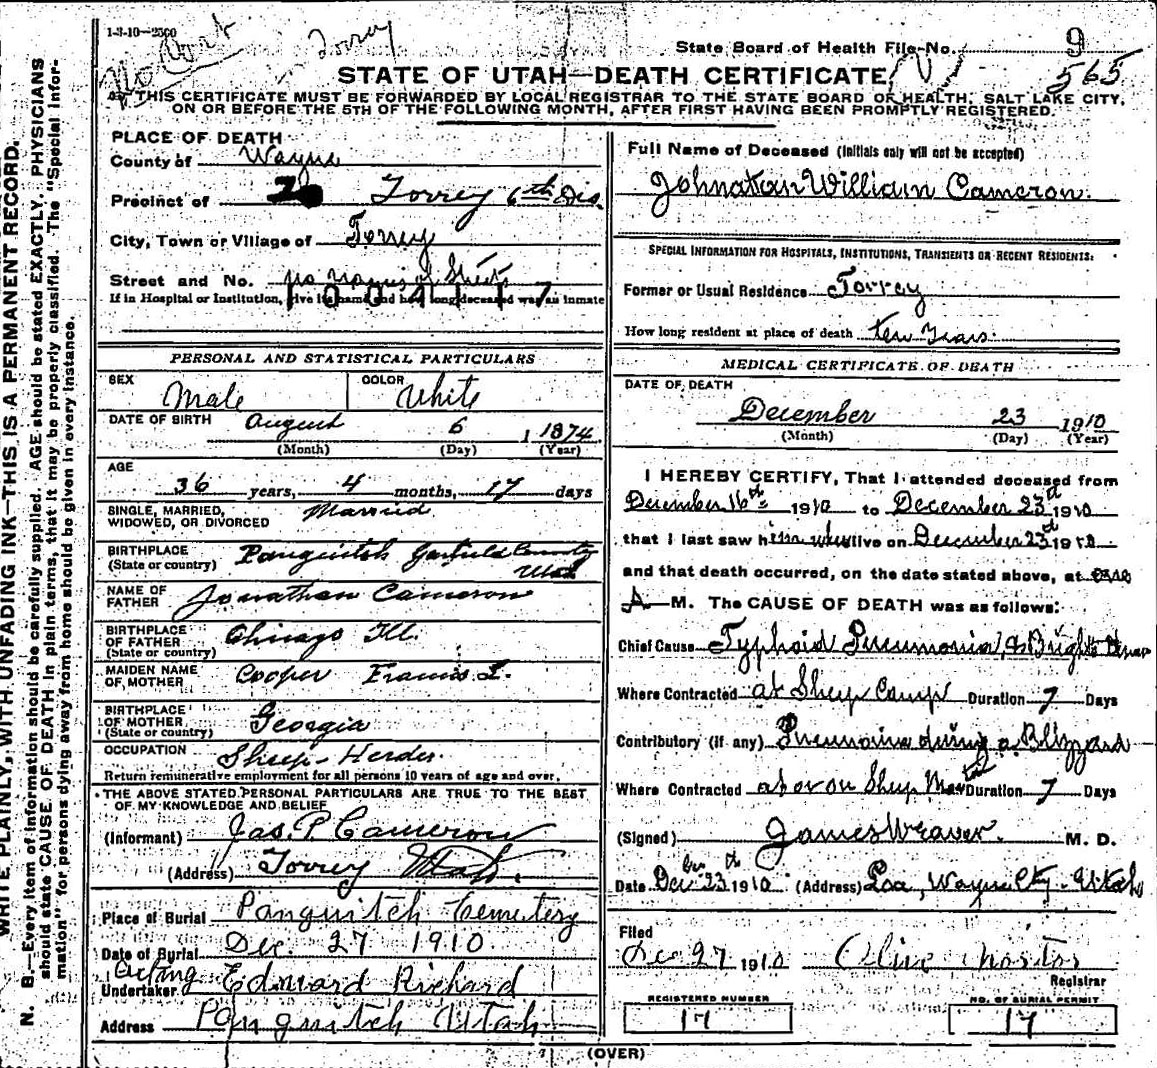 1-3-10-2500
Torrey
State Board of Health File No. 9
565
STATE OF UTAH—DEATH CERTIFICATE
THIS CERTIFICATE MUST BE FORWARDED BY LOCAL REGISTRAR TO THE STATE BOARD OF HEALTH, SALT LAKE CITY,
ON OR BEFORE THE 5TH OF THE FOLLOWING MONTH, AFTER FIRST HAVING BEEN PROMPTLY REGISTERED.
WRITE PLAINLY, WITH UNFADING INK—THIS IS A PERMANENT RECORD.
N. B.—Every item of information should be carefully supplied. AGE should be stated EXACTLY. PHYSICIANS
should state CAUSE OF DEATH in plain terms, that it may be properly classified. The "Special Infor-
mation" for persons dying away from home should be given in every instance.
PLACE OF DEATH
County of Wayne
Precinct of Torrey 6th Dis.
City, Town or Village of Torrey
Street and No. no names of Streets
If in Hospital or Institution, give its name and how long deceased was an inmate
PERSONAL AND STATISTICAL PARTICULARS
SEX Male COLOR White
DATE OF BIRTH August 6 1874
(Month) (Day) (Year)
AGE
36 years, 4 months, 17 days
SINGLE, MARRIED,
WIDOWED, OR DIVORCED Married
BIRTHPLACE
(State or country) Panguitch Garfield County
Utah
NAME OF
FATHER Jonathan Cameron
BIRTHPLACE
OF FATHER
(State or country) Chicago Ill.
MAIDEN NAME
OF MOTHER Cooper Francis I.
BIRTHPLACE
OF MOTHER
(State or country) Georgia
OCCUPATION Sheep-Herder
Return remunerative employment for all persons 10 years of age and over.
THE ABOVE STATED PERSONAL PARTICULARS ARE TRUE TO THE BEST
OF MY KNOWLEDGE AND BELIEF
(Informant) Jas. P. Cameron
(Address) Torrey Utah.
Place of Burial Panguitch Cemetery
Date of Burial Dec. 27 1910
Acting
Undertaker Edward Richard
Address Panguitch Utah
Full Name of Deceased (Initials only will not be accepted)
Johnatan William Cameron.
SPECIAL INFORMATION FOR HOSPITALS, INSTITUTIONS, TRANSIENTS OR RECENT RESIDENTS:
Former or Usual Residence Torrey
How long resident at place of death ten Years
MEDICAL CERTIFICATE OF DEATH
DATE OF DEATH
December 23 1910
(Month) (Day) (Year)
I HEREBY CERTIFY, That I attended deceased from
December 16th 1910 to December 23d 1910
that I last saw him alive on December 23d 1910
and that death occurred, on the date stated above, at
A M. The CAUSE OF DEATH was as follows:
Chief Cause Typhoid Pneumonia, & Brights
Where Contracted at Sheep Camp Duration 7 Days
Contributory (if any) Pneumonia during a Blizzard
Where Contracted on Sheep Duration 7 Days
(Signed) James Weaver. M. D.
Date Dec 23 1910 (Address) Loa, Wayne Cty. Utah
Filed
Dec 27 1910 Olive
Registrar
REGISTERED NUMBER
17
NO. OF BURIAL PERMIT
17
(OVER)